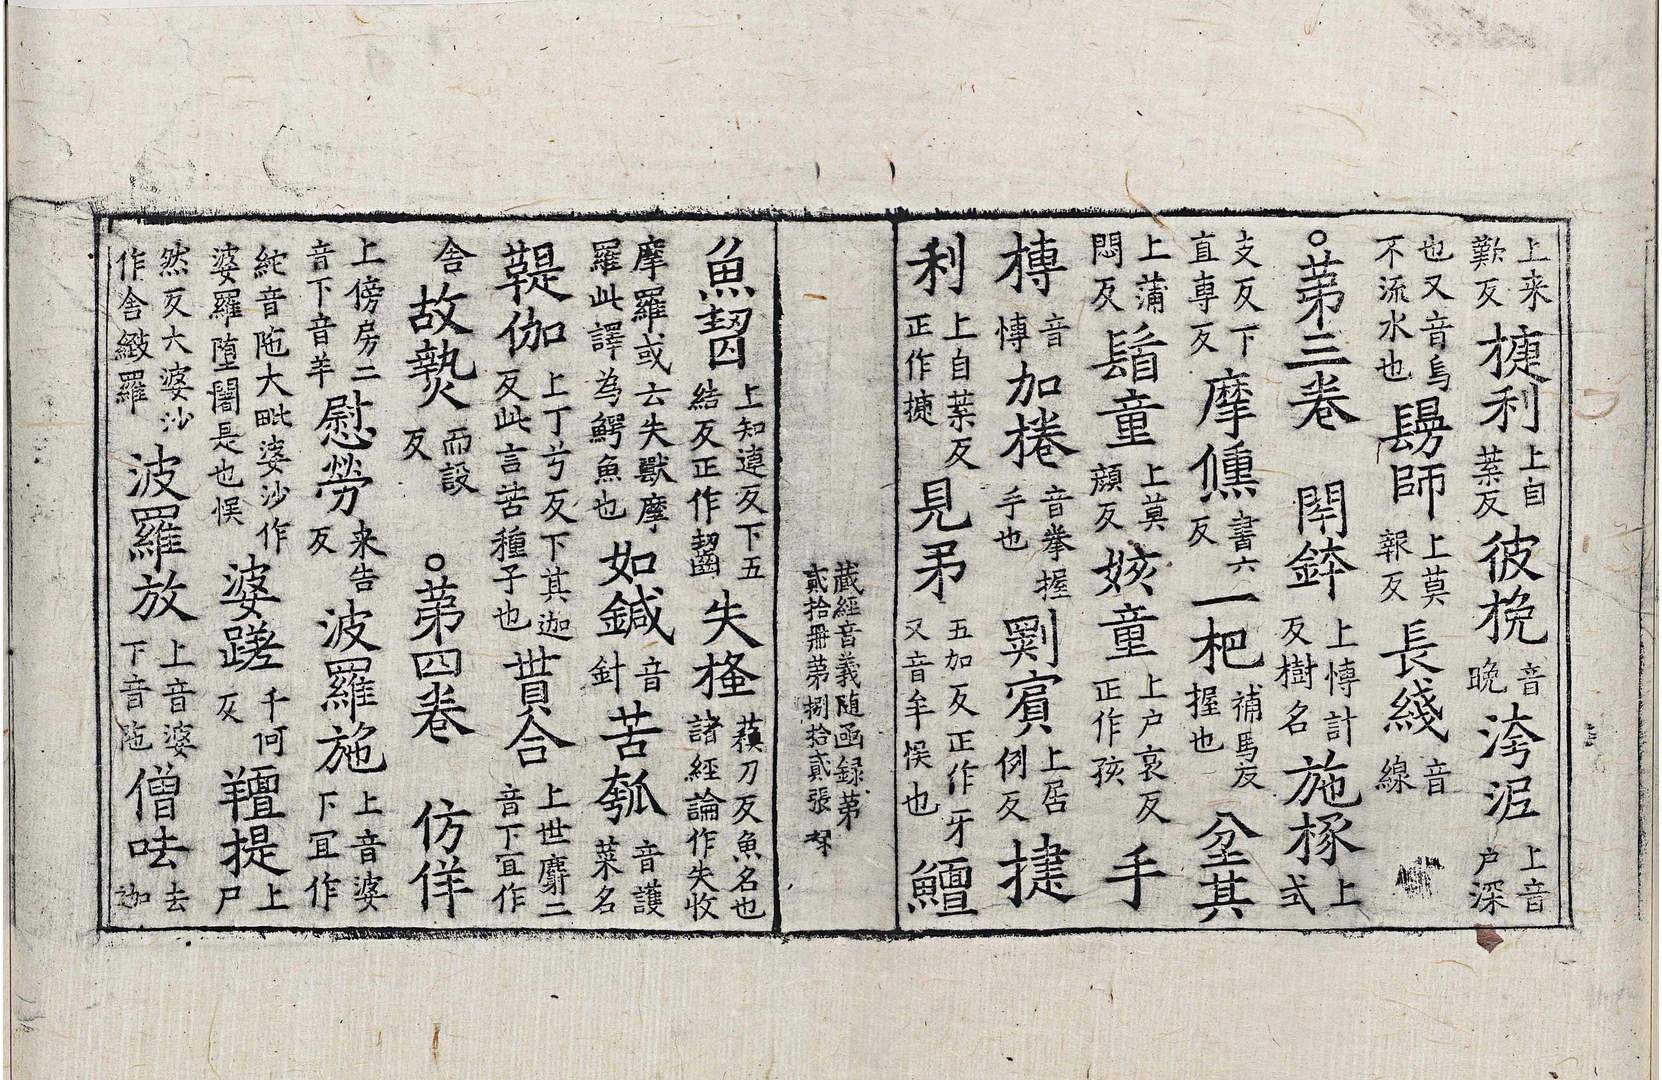 上来歎反捷利上自葉反彼挽音晚洿泥上音戸深
也又音烏不流水也髩師上莫報反長綫音線
○第三卷 閇鉢上愽計反樹名施㭰上式
支反下直専反摩㒧書六反一杷補馬反握也坌其
上蒲悶反鬍童上莫顔反㛥童上户哀反正作孩手
槫音愽加棬音拳握手也罽賓上居例反捷
利上自葉反正作捷見矛五加反正作牙又音牟悮也鱣
藏經音義随函録第貳拾册第捌拾貳張
魚齧上知連反下五結反正作齧失㨶蘓刀反魚名也諸經論作失收
摩羅或云失獸摩羅此譯為鰐魚也如鍼音針苦瓠音護菜名
鞮伽上丁兮反下其迦反此言苦種子也貰合上世麝二音下冝作
舍故爇而設反○第四卷 仿佯
上傍房二音下音羊慰勞来告反波羅施上音婆下冝作
紽音陁大毗婆沙作婆羅堕闍是也悮婆蹉千何反羶提上尸
然反大婆沙作舍緻羅波羅放上音婆下音陁僧呿去迦